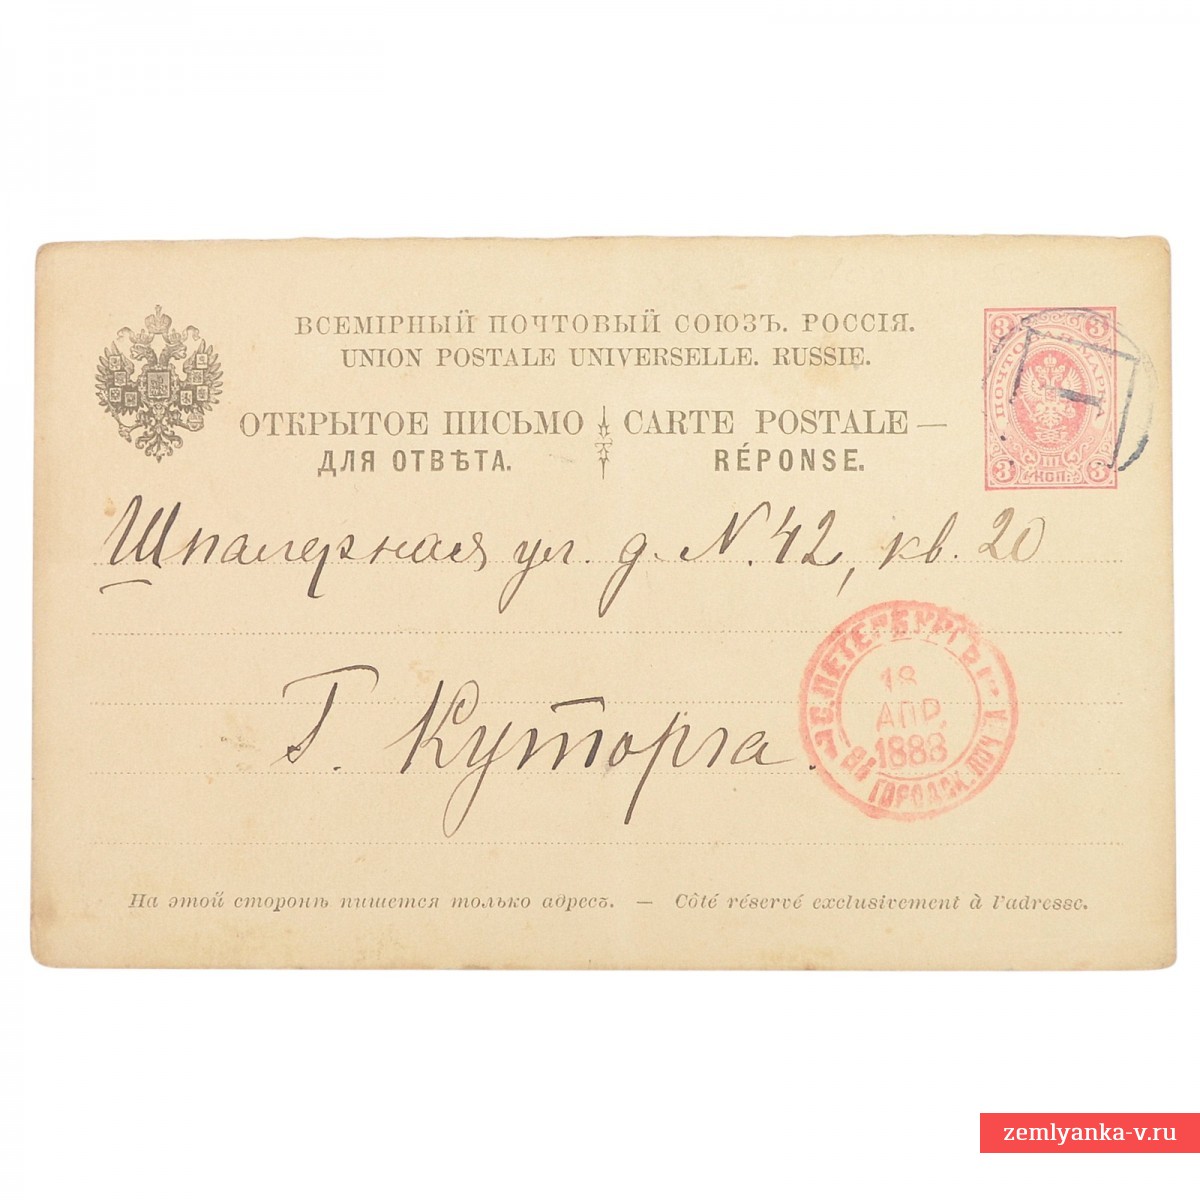 ВСЕМІРНЫЙ ПОЧТОВЫЙ СОЮЗЪ. РОССІЯ.
UNION POSTALE UNIVERSELLE. RUSSIE.
ОТКРЫТОЕ ПИСЬМО CARTE POSTALE —
ДЛЯ ОТВѢТА. RÉPONSE.
3 3
ПОЧТОВАЯ МАРКА
III
3 КОП. 3
Шпалерная ул. д. N. 42, кв. 20
Г. Куторга.
С. ПЕТЕРБУРГЪ
18
АПР.
1888
ГОРОДСК. ПОЧ
На этой сторонѣ пишется только адресъ. — Côté réservé exclusivement à l'adresse.
zemlyanka-v.ru